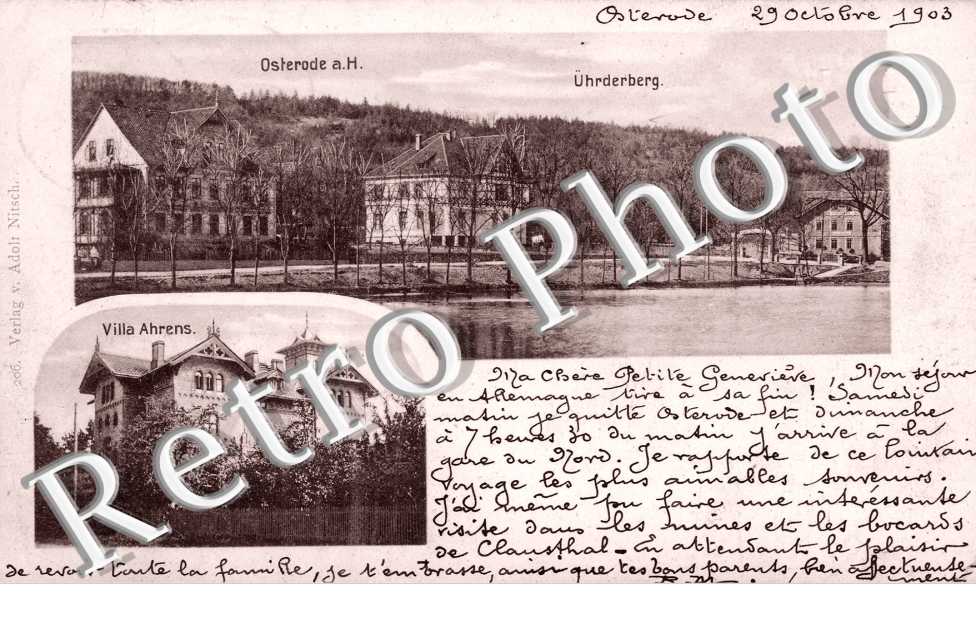 Osterode 29 Octobre 1903
Osterode a.H.
Ührderberg.
206. Verlag v. Adolf Nitsch.
Villa Ahrens.
Ma chère Petite Geneviève, Mon séjour
en Allemagne tire à sa fin! Samedi
matin je quitte Osterode et dimanche
à 7 heures 30 du matin j'arrive à la
gare du Nord. Je rapporte de ce lointain
voyage les plus aimables souvenirs.
J'ai même pu faire une intéréssante
visite dans les mines et les bocards
de Clausthal - En attendant le plaisir
de revoir toute la famille, je t'embrasse, ainsi que tes bons parents, bien affectueuse-
ment
Retro Photo